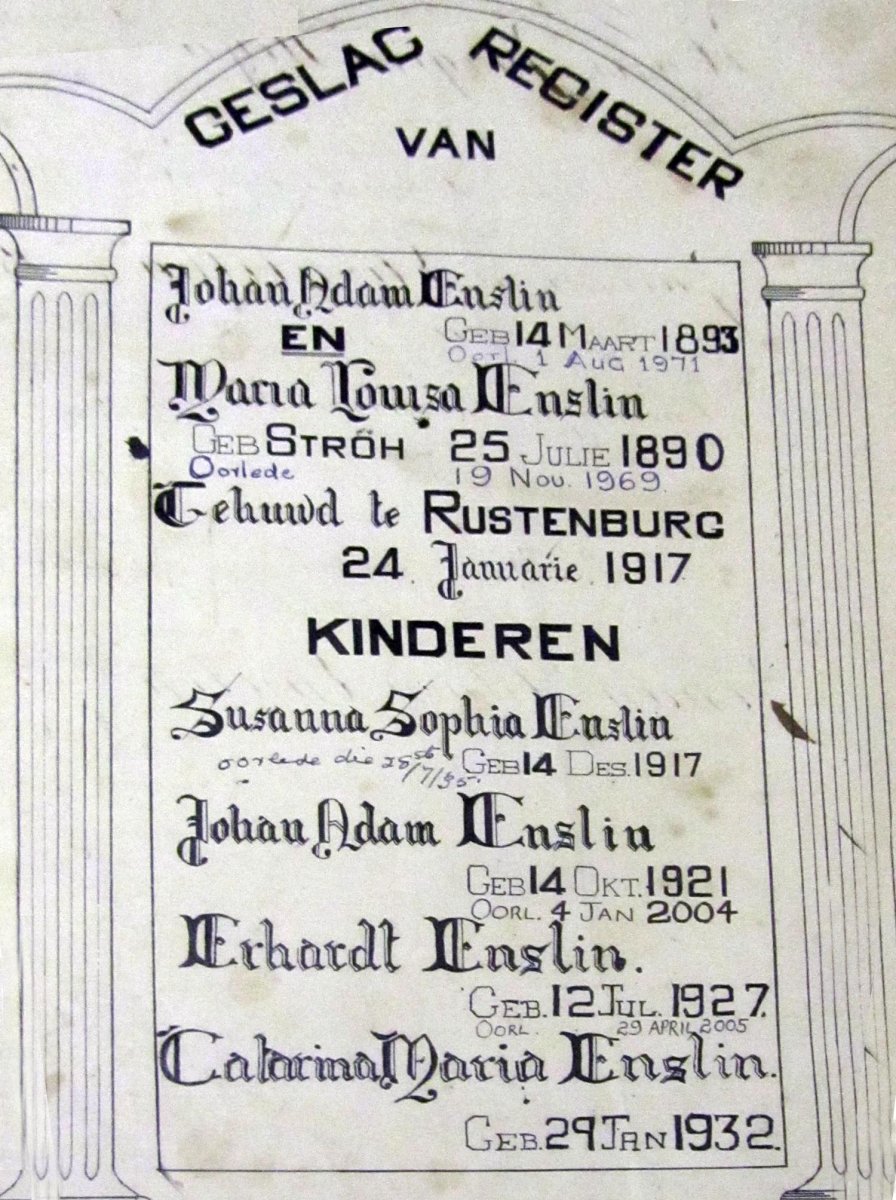 GESLAG REGISTER
VAN
Johan Adam Enslin
EN GEB 14 MAART 1893
Oorl. 1 Aug 1971
Maria Louisa Enslin
GEB STRÖH 25 JULIE 1890
Oorlede 19 Nov. 1969
Gehuwd te RUSTENBURG
24 Januarie 1917
KINDEREN
Susanna Sophia Enslin
oorlede die GEB 14 DES. 1917
Johan Adam Enslin
GEB 14 OKT. 1921
OORL. 4 JAN 2004
Erhardt Enslin.
GEB. 12 JUL. 1927.
OORL. 29 APRIL 2005
Catarina Maria Enslin.
GEB. 29 JAN 1932.